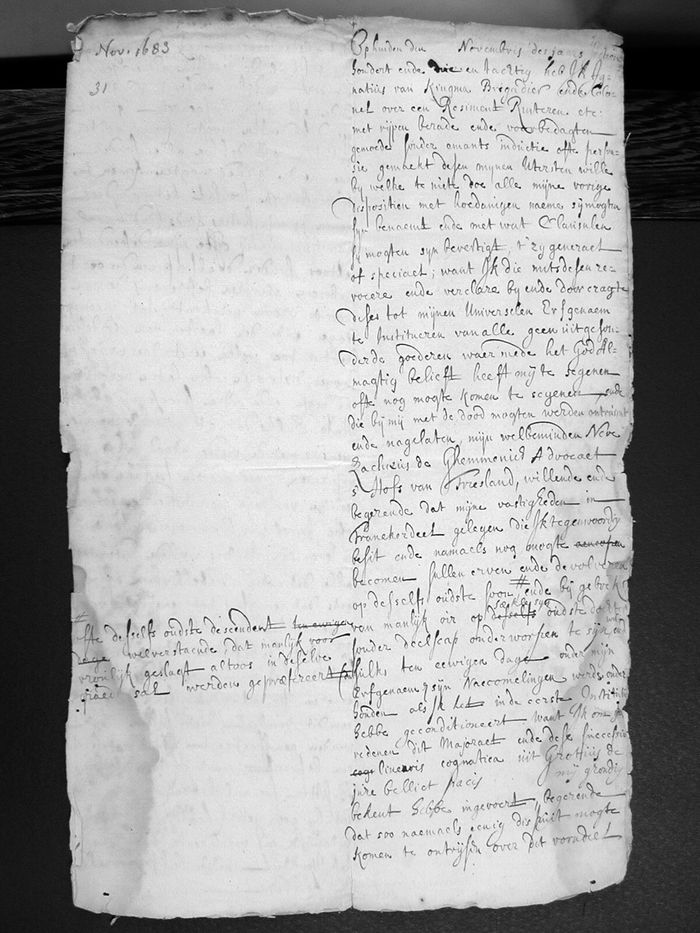 Nov. 1683
31
Op huiden den Novembris des jaers
hondert ende drie en tachtig heb Ik Ig-
natius van Kingma Brigadier ende Colo-
nel over een Regiment Ruiteren etc:
met rijpen berade ende voorbedagten
gemoede sonder imants inductie ofte persua-
sie gemaekt desen mijnen Utersten wille
bij welke te niete doe alle mijne vorige
disposition met hoedanigen naeme sij mogten
sijn benaemt ende met wat Clausulen
sij mogten syn bevertigt, t'zy generael
of speciael; want Ik die mits desen re-
vocere ende verclare by ende door cragte
deses tot mijnen Universelen Erfgenaem
te Institueren van alle geen uitgeson-
derde goederen waer mede het God Al-
magtig belieft heeft mij te segenen
ofte nog mogte komen te segenen, ende
die bij mij met de dood mogten werden ontruimt
ende nagelaten, mijn welbeminden Neve
Zachæus de Ghemmenich Advocaet
s' Hofs van Vriesland, willende ende
begerende dat mijne vastigheden in
Franekerdeel gelegen die Ik tegenwoordig
besit ende namaels nog mogte aencopen
becomen sullen erven ende devolveren
op desselfs oudste soon # ende bij gebrek
van manlijk oir op desselfs oudste dochter
sonder deelscap onderworpen te sijn, ende
sulks ten eewigen dage onder mijn
Erfgenaem & sijn Naecomelingen werde onder-
houden als Ik het in de eerste Institutie
hebbe geconditioneert want Ik om
redenen dit Majoraet ende dese successie
cog linearis cognatica uit Grotius de
jure belli et pacis mij grondig
bekent hebbe ingevoert, begerende
dat soo naemaels eenig dispuit mogte
komen te ontrijsen over dit voordeel
# ofte desselfs oudste descendent ten ewigen
dage welverstaende dat manlijk voor
vronlijk geslacht altoos in deselve
graed sal werden gepræfereert